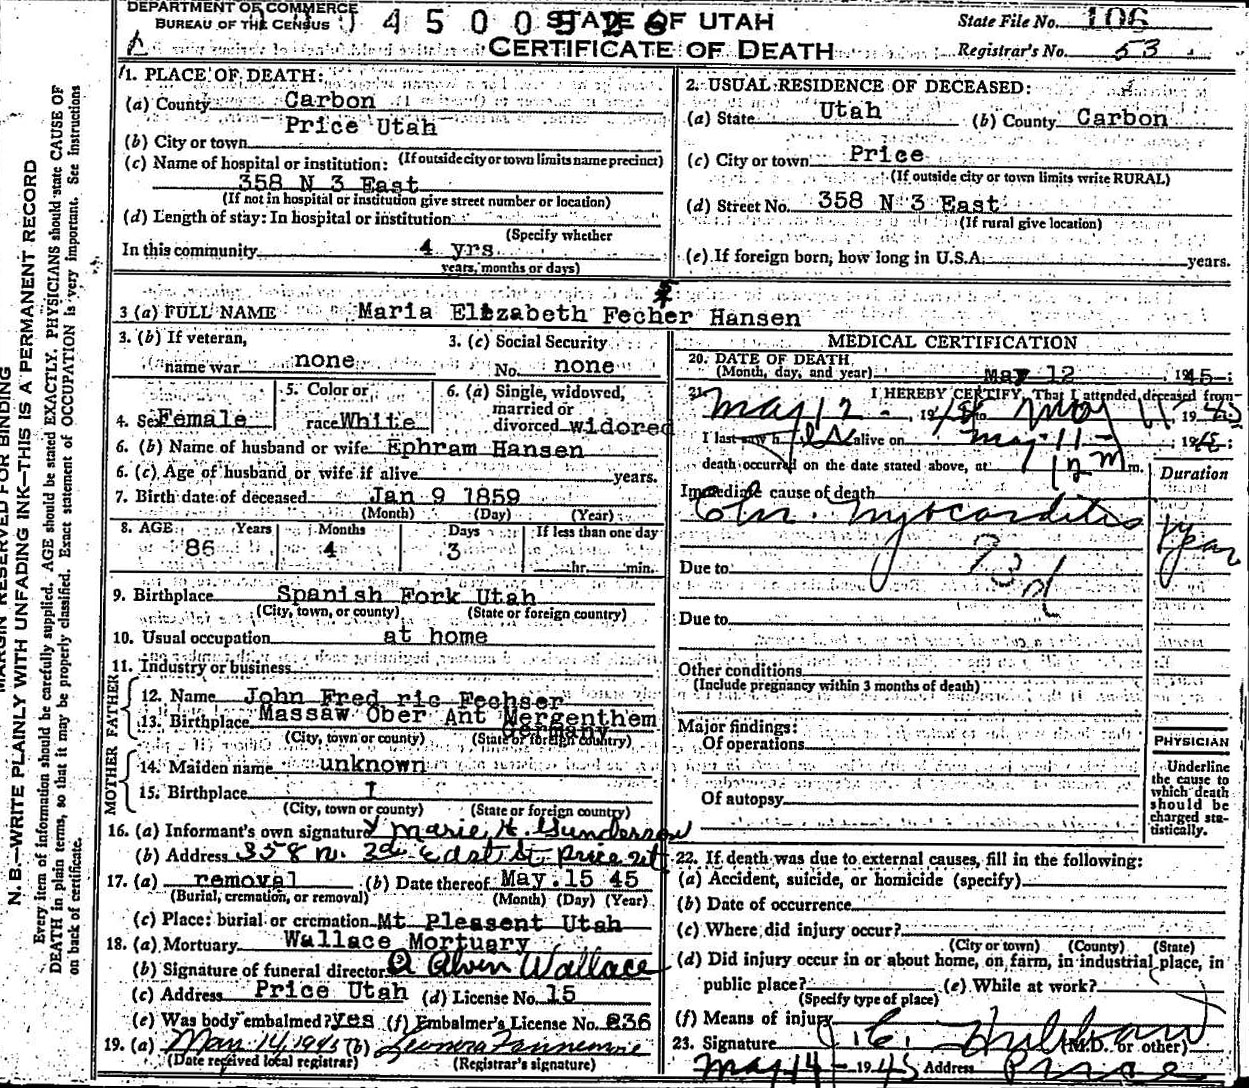 DEPARTMENT OF COMMERCE
BUREAU OF THE CENSUS
J 4 5 0 0 9 2 6
STATE OF UTAH
CERTIFICATE OF DEATH
State File No. 106
Registrar's No. 53
MARGIN RESERVED FOR BINDING
N. B.—WRITE PLAINLY WITH UNFADING INK—THIS IS A PERMANENT RECORD
Every item of information should be carefully supplied. AGE should be stated EXACTLY. PHYSICIANS should state CAUSE OF
DEATH in plain terms, so that it may be properly classified. Exact statement of OCCUPATION is very important. See instructions
on back of certificate.
1. PLACE OF DEATH:
(a) County Carbon
Price Utah
(b) City or town
(c) Name of hospital or institution: (If outside city or town limits name precinct)
358 N 3 East
(If not in hospital or institution give street number or location)
(d) Length of stay: In hospital or institution
(Specify whether
In this community 4 yrs
years, months or days)
2. USUAL RESIDENCE OF DECEASED:
(a) State Utah (b) County Carbon
(c) City or town Price
(If outside city or town limits write RURAL)
(d) Street No. 358 N 3 East
(If rural give location)
(e) If foreign born, how long in U.S.A. years.
3 (a) FULL NAME Maria Elizabeth Fecher Hansen
s
3. (b) If veteran,
name war none
3. (c) Social Security
No. none
4. Sex Female
5. Color or
race White
6. (a) Single, widowed,
married or
divorced widored
6. (b) Name of husband or wife Ephram Hansen
6. (c) Age of husband or wife if alive years.
7. Birth date of deceased Jan 9 1859
(Month) (Day) (Year)
8. AGE Years Months Days If less than one day
86 4 3 hr. min.
9. Birthplace Spanish Fork Utah
(City, town, or county) (State or foreign country)
10. Usual occupation at home
11. Industry or business
FATHER
12. Name John Fred ric Fechser
13. Birthplace Massaw Ober Ant Mergenthem
Germany
(City, town or county) (State or foreign country)
MOTHER
14. Maiden name unknown
15. Birthplace
(City, town or county) (State or foreign country)
16. (a) Informant's own signature x Marie H. Gunderson
(b) Address 358 N. 3d East St Price Ut
17. (a) removal (b) Date thereof May 15 45
(Burial, cremation, or removal) (Month) (Day) (Year)
(c) Place: burial or cremation Mt Pleasent Utah
18. (a) Mortuary Wallace Mortuary
(b) Signature of funeral director A Alvin Wallace
(c) Address Price Utah (d) License No. 15
(e) Was body embalmed? yes (f) Embalmer's License No. 236
19. (a) May 14 1945 (b) Leonora
(Date received local registrar) (Registrar's signature)
MEDICAL CERTIFICATION
20. DATE OF DEATH
(Month, day, and year) May 12, 1945
21. I HEREBY CERTIFY, That I attended deceased from
May 12 - 19 to May 11 1945
I last saw h alive on May 11 - 1945
death occurred on the date stated above, at 12 m m.
Immediate cause of death
Duration
Chr. Myocarditis
1 year
Due to
93d
Due to
Other conditions
(Include pregnancy within 3 months of death)
Major findings:
Of operations
Of autopsy
PHYSICIAN
Underline
the cause to
which death
should be
charged sta-
tistically.
22. If death was due to external causes, fill in the following:
(a) Accident, suicide, or homicide (specify)
(b) Date of occurrence
(c) Where did injury occur?
(City or town) (County) (State)
(d) Did injury occur in or about home, on farm, in industrial place, in
public place? (e) While at work?
(Specify type of place)
(f) Means of injury
23. Signature J. C. Hubbard (M.D. or other)
May 14 - 1945 Address Price